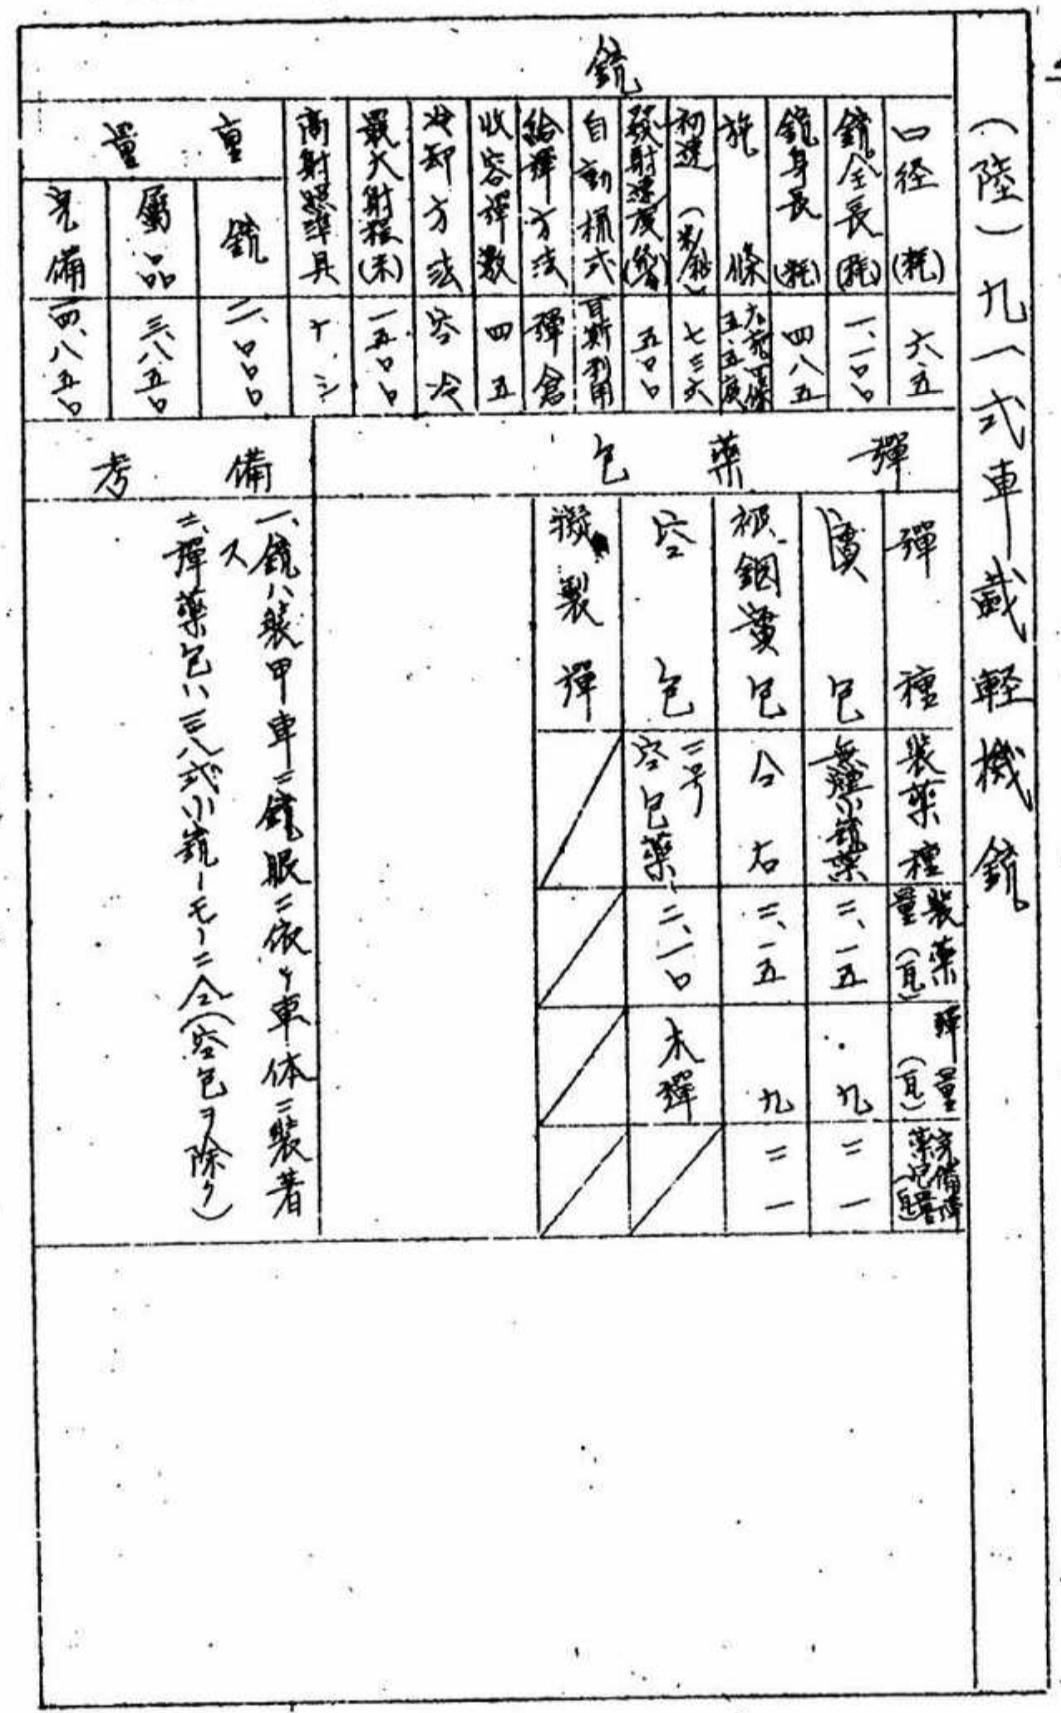 (陸)九一式車載軽機銃
銃
口径(粍) 六.五
銃全長(粍) 一、一〇〇
銃身長(粍) 四八五
施條 右, 四條 五.五度
初速(米/秒) 七三六
發射速度 五〇〇
自動様式 瓦斯利用
給弾方法 彈倉
收容彈数 四五
冷却方法 空冷
最大射程(米) 一五〇〇
高射照準具 ナシ
重量
銃
属品 三.八五〇
完備 一四、八五〇
彈藥包
彈種 装薬種 装薬量(瓦) 彈量(瓦) 完備弾薬包量(瓦)
實包 無煙小銃薬 二、一五 九 二一
被鋼實包 仝右 二、一五 九 二一
空包 二号空包薬 二、一〇 木彈
擬製彈
備考
一、銃ハ装甲車ニ銃眼ニ依リ車体ニ装着
ス
二、彈藥包ハ三八式小銃ノモノニ仝(空包ヲ除ク)